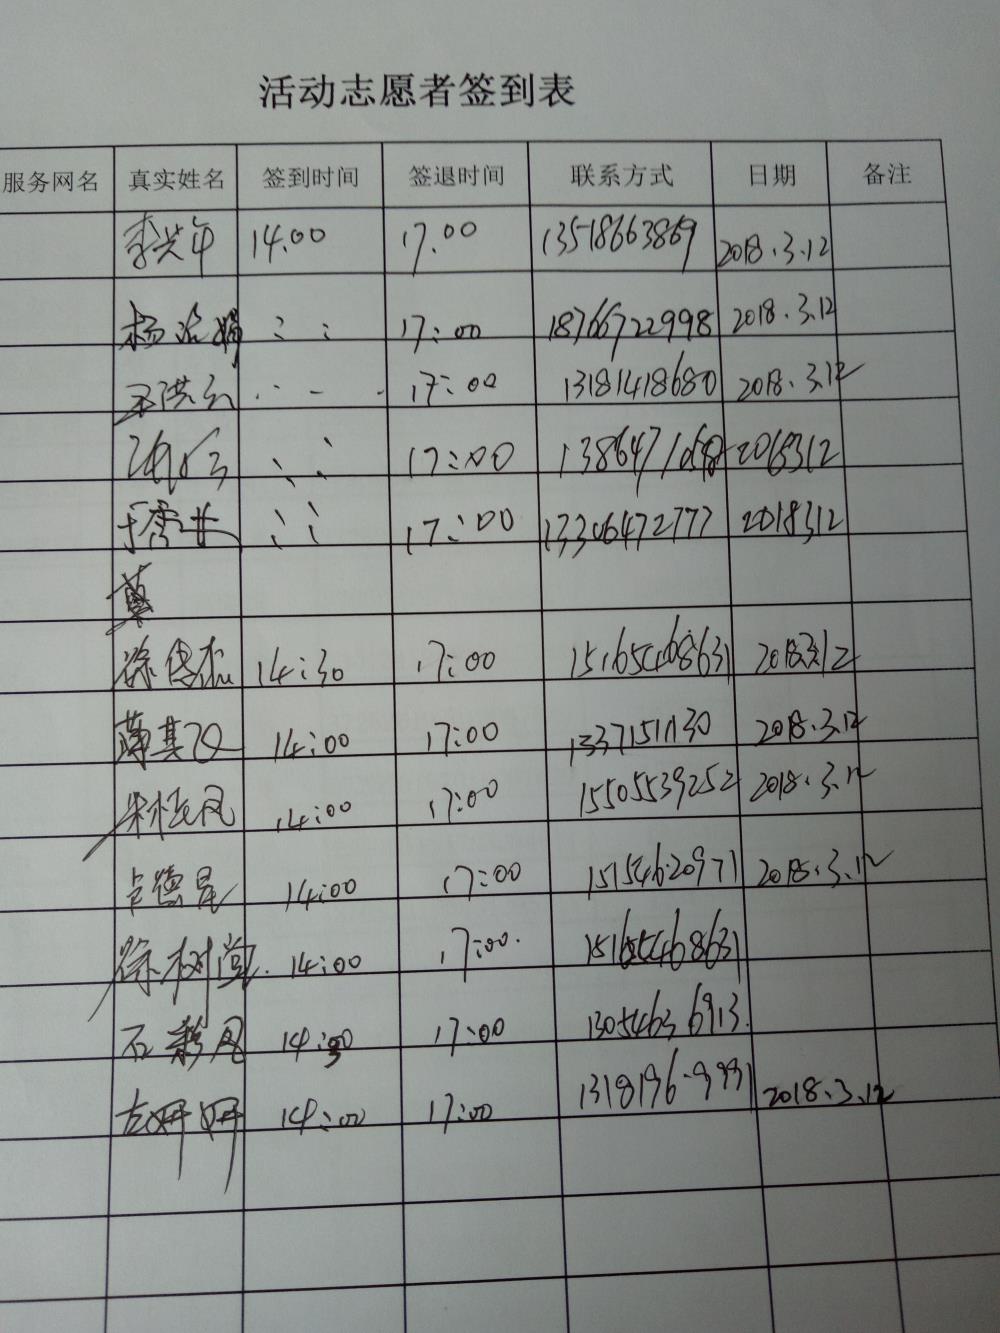 活动志愿者签到表
服务网名 真实姓名 签到时间 签退时间 联系方式 日期 备注
李兴年 14.00 17.00 13518663869 2018.3.12
杨 17:00 18766722998 2018.3.12
王洪云 17:00 13181418680 2018.3.12
17:00
17:00 13306472777 2018312
徐传杰 14:30 17:00 15165468631 2018.3.12
薄其 14:00 17:00 2018.3.12
14:00 17:00 15505539252 2018.3.12
卢德星 14:00 17:00 15154620971 2018.3.12
徐树堂 14:00 17:00. 15165468631
石 17:00 13054636913.
左妍妍 14:00 17:00 2018.3.12